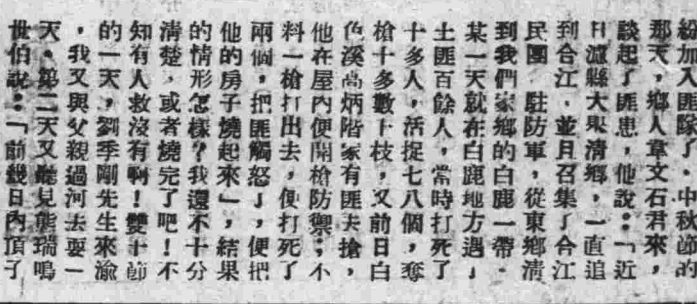 紛加入匪隊了。中秋節的
那天,鄉人章文石君來,
談起了匪患,他說:「近
日瀘縣大舉清鄉,一直追
到合江.並且召集了合江
民團 駐防軍,從東鄉清
到我們家鄉的白鹿一帶.
某一天就在白鹿地方遇」
土匪百餘人,當時打死了
十多人,活捉七八個,奪
槍十多數十枝,又前日白
色溪高炳階家有匪夫搶,
他在屋內便開槍防禦;不
料一槍打出去,便打死了
兩個,把匪觸怒了,便把
他的房子燒起來」,結果
的情形怎樣?我還不十分
清楚,或者燒完了吧!不
知有人救沒有啊!雙十節
的一天,劉季剛先生來渝
,我又與父親過河去耍一
天。第二天又聽見熊瑞鳴
世伯說:「前幾日內頂子